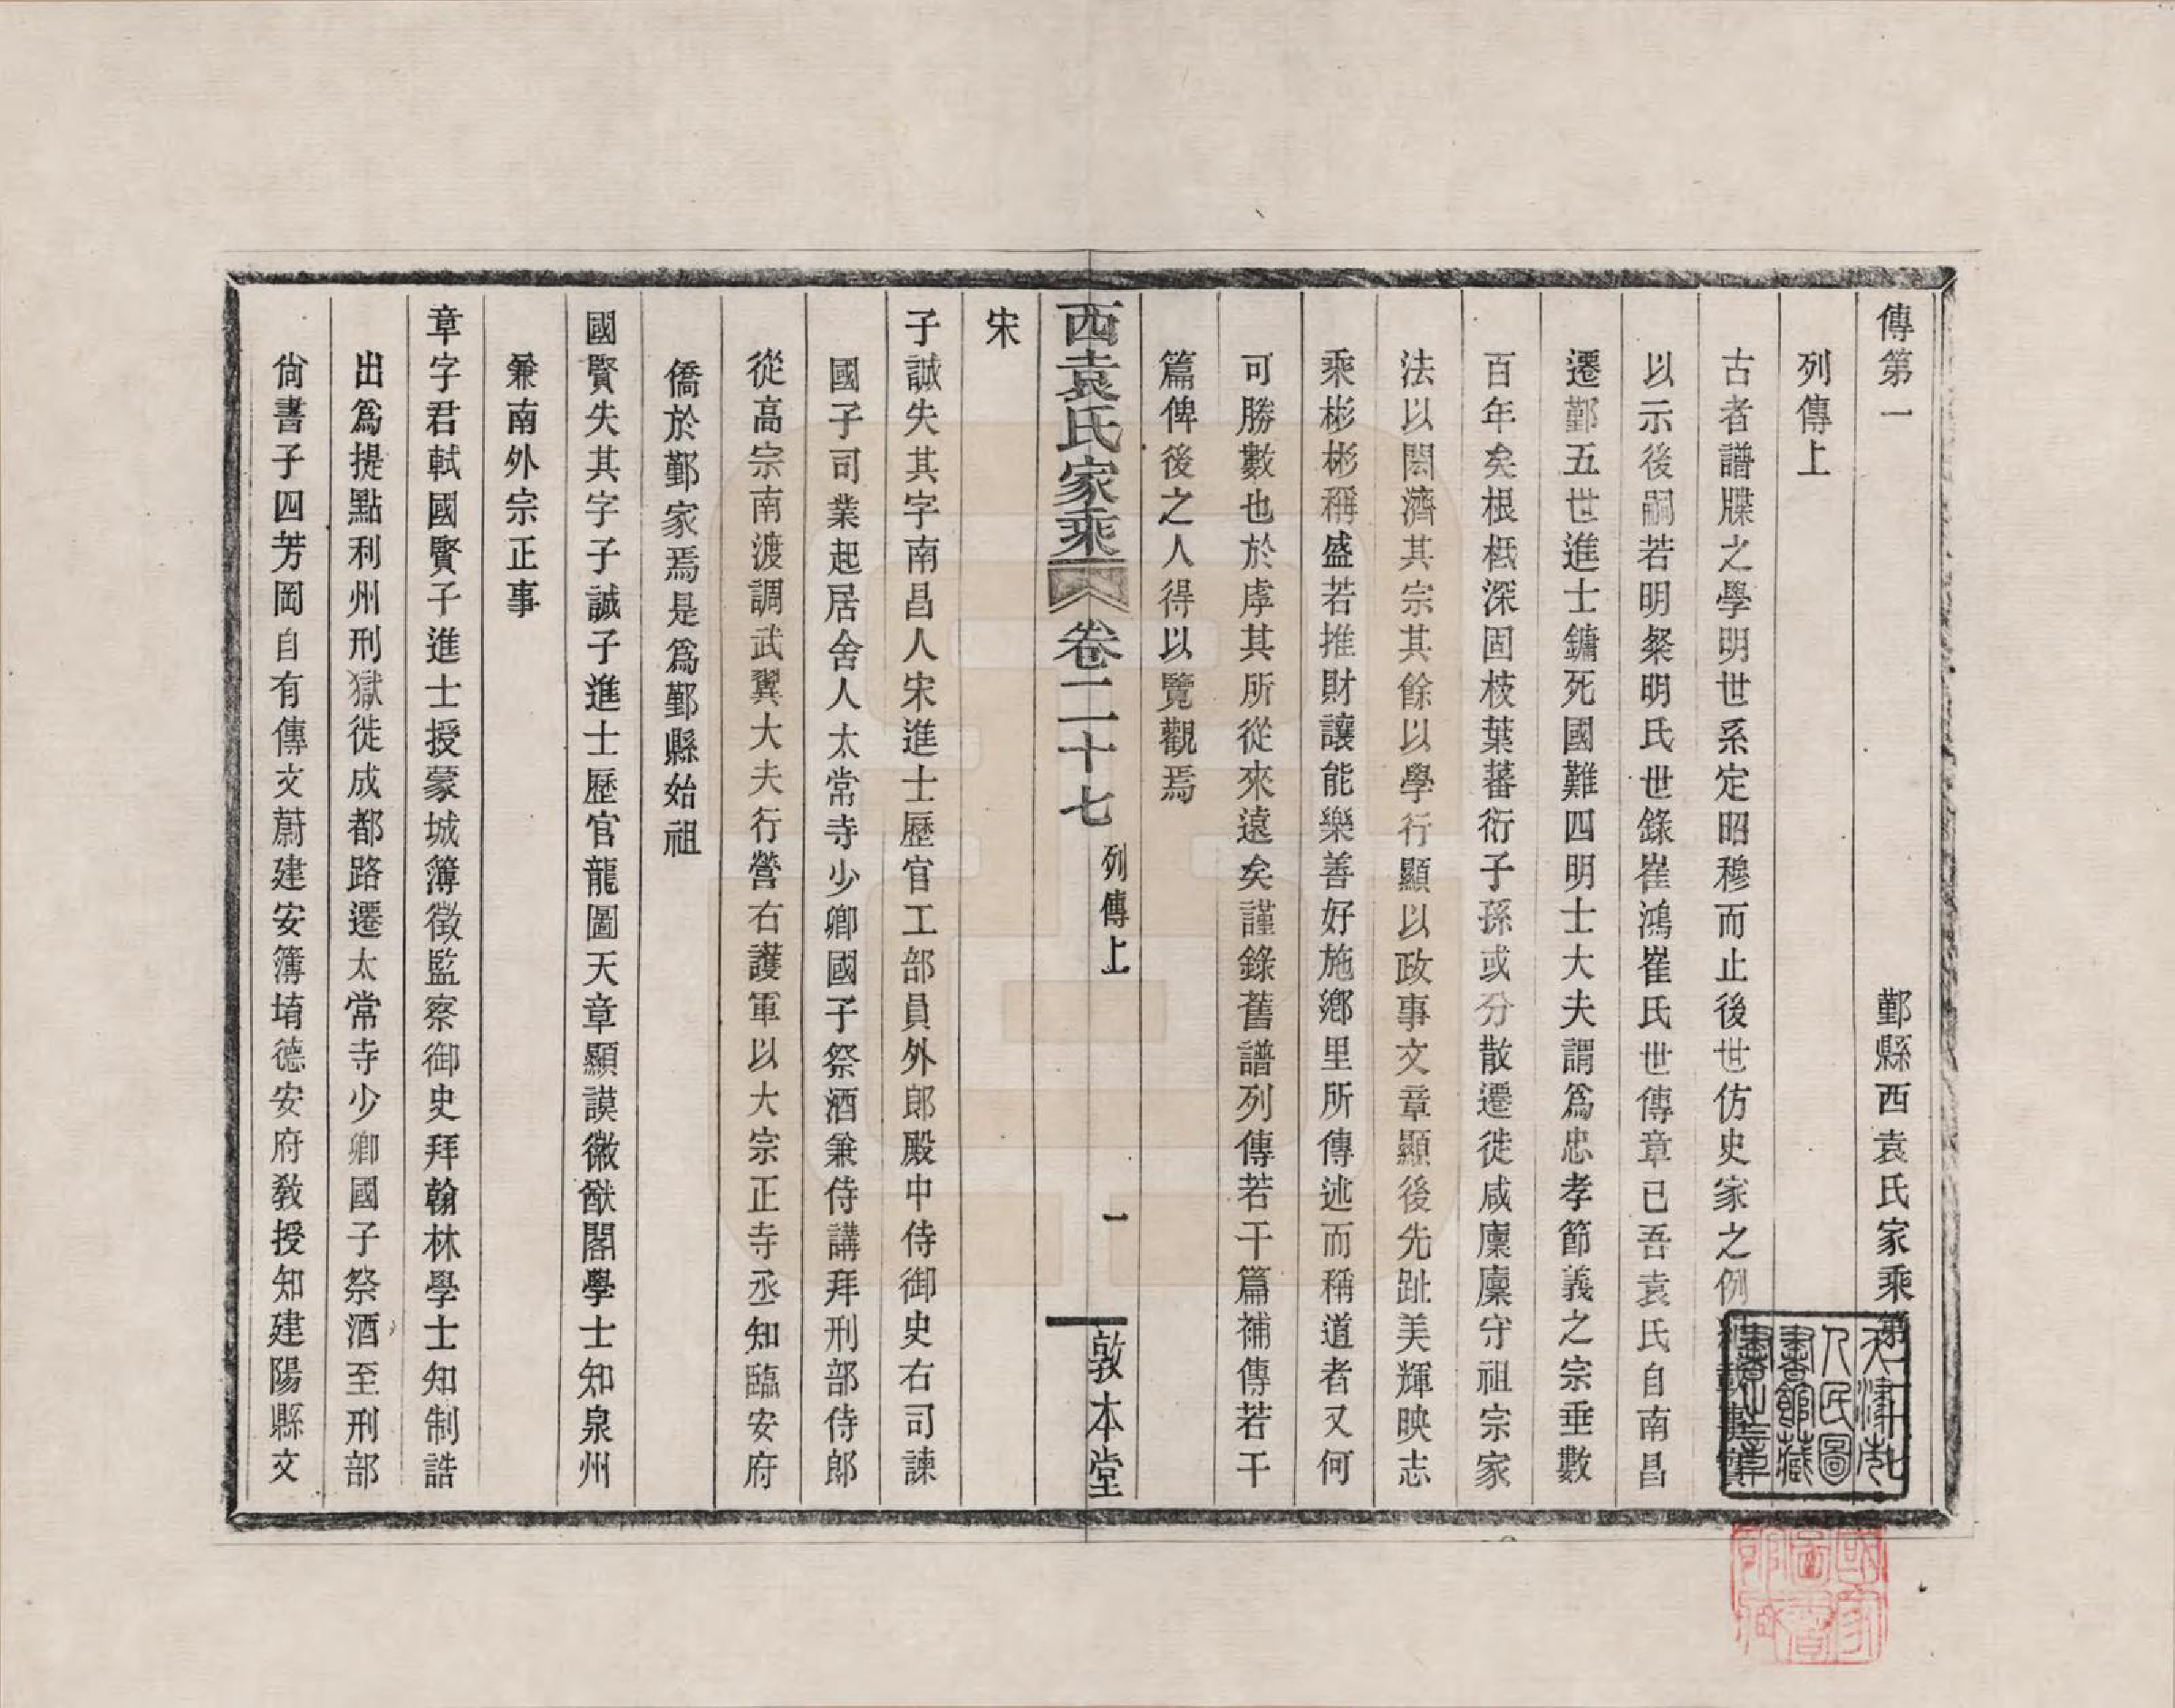 傳第一　鄞縣西袁氏家乘第
列傳上
古者譜牒之學明世系定昭穆而止後世仿史家之例
以示後嗣若明粲明氏世錄崔鴻崔氏世傳章已吾袁氏自南昌
遷鄞五世進士鏞死國難四明士大夫謂爲忠孝節義之宗垂數
百年矣根柢深固枝葉蕃衍子孫或分散遷徙咸廩廩守祖宗家
法以閎濟其宗其餘以學行顯以政事文章顯後先趾美輝映志
乘彬彬稱盛若推財讓能樂善好施鄉里所傳述而稱道者又何
可勝數也於虖其所從來遠矣謹錄舊譜列傳若干篇補傳若干
篇俾後之人得以覽觀焉
西袁氏家乘　卷二十七　列傳上　一　敦本堂
宋
子誠失其字南昌人宋進士歷官工部員外郎殿中侍御史右司諫
國子司業起居舍人太常寺少卿國子祭酒兼侍講拜刑部侍郎
從高宗南渡調武翼大夫行營右護軍以大宗正寺丞知臨安府
僑於鄞家焉是爲鄞縣始祖
國賢失其字子誠子進士歷官龍圖天章顯謨徽猷閣學士知泉州
兼南外宗正事
章字君軾國賢子進士授蒙城簿徵監察御史拜翰林學士知制誥
出爲提點利州刑獄徙成都路遷太常寺少卿國子祭酒至刑部
尙書子四芳岡自有傳文蔚建安簿堉德安府敎授知建陽縣文
天津市
人民圖
書館藏
書之章
國家
圖書
館藏